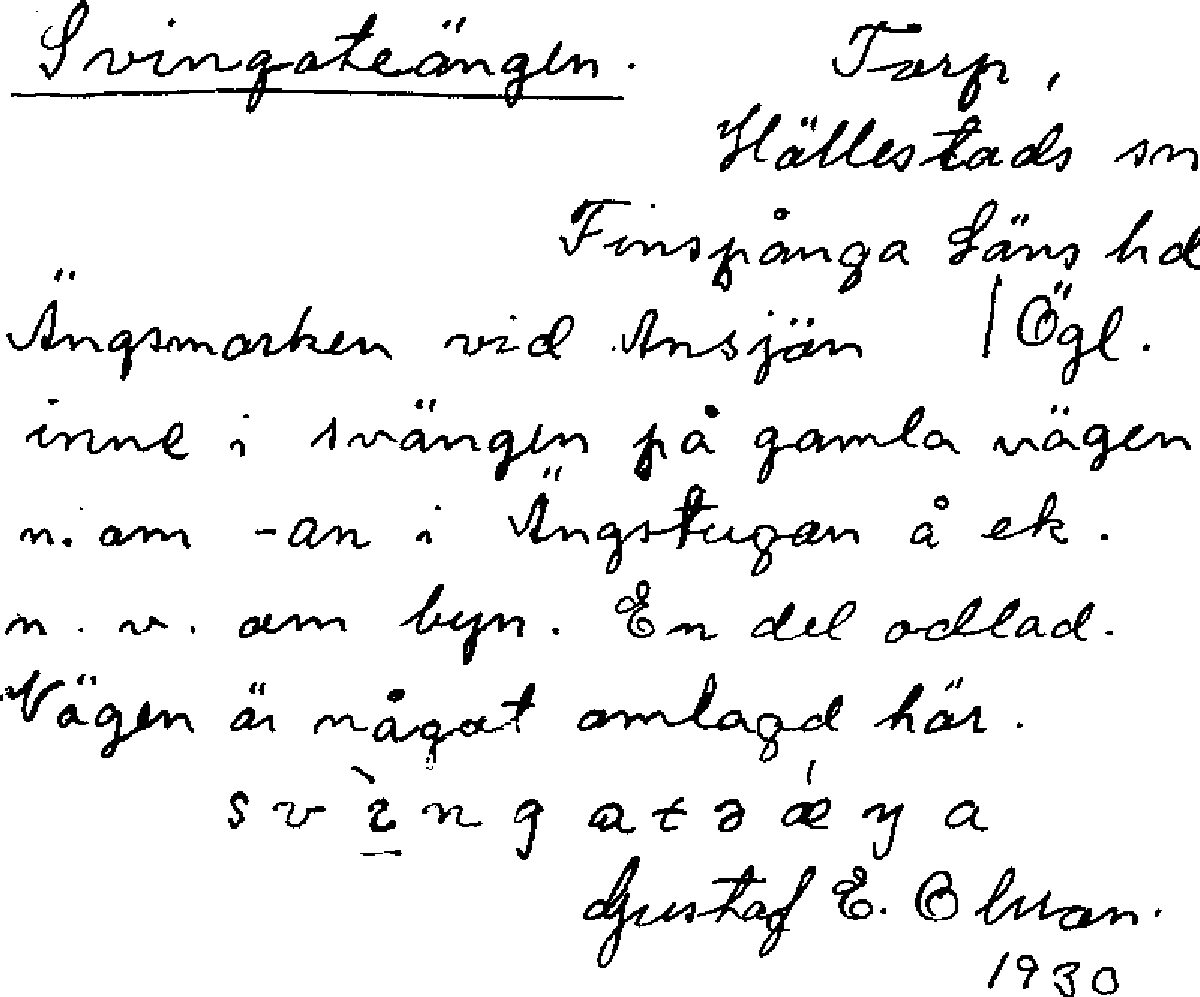 Svingateängen.
Torp,
Hällestads sn
Finspånga Läns hd
Ängsmarken vid Ansjön / Ögl.
inne i svängen på gamla vägen
n. om -an i Ängstugan å ek.
n. v. om byn. En del odlad.
Vägen är något omlagd här.
Gustaf E. Olsson.
1930